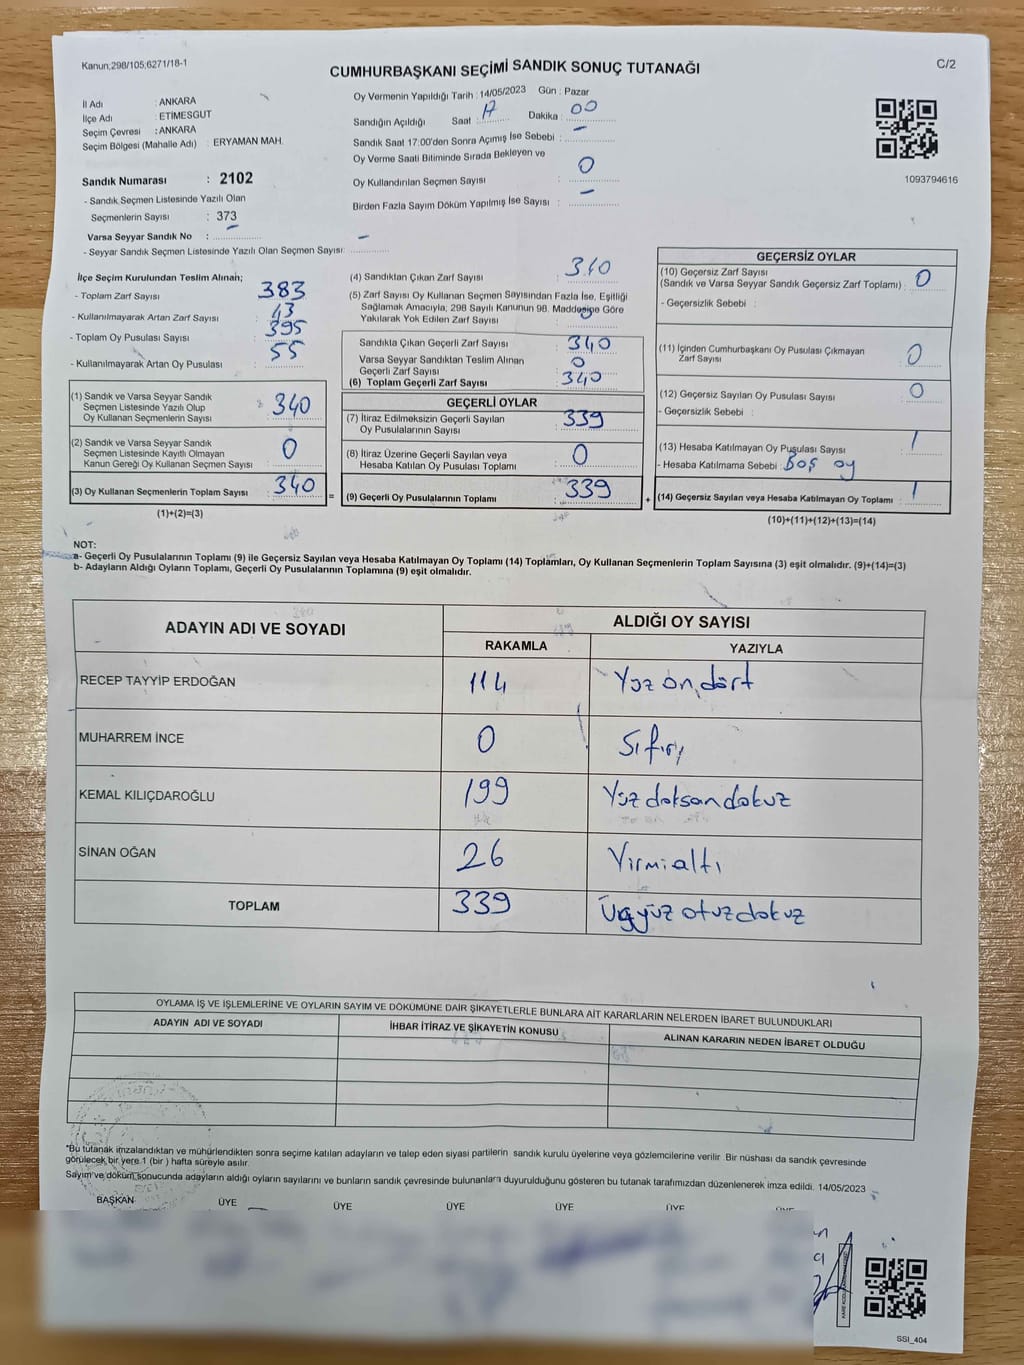 Kanun;298/105,6271/18-1
CUMHURBAŞKANI SEÇİMİ SANDIK SONUÇ TUTANAĞI
C/2
İl Adı : ANKARA
İlçe Adı : ETİMESGUT
Seçim Çevresi : ANKARA
Seçim Bölgesi (Mahalle Adı) : ERYAMAN MAH.
Sandık Numarası : 2102
- Sandık Seçmen Listesinde Yazılı Olan
Seçmenlerin Sayısı : 373
Varsa Seyyar Sandık No : –
- Seyyar Sandık Seçmen Listesinde Yazılı Olan Seçmen Sayısı: –
Oy Vermenin Yapıldığı Tarih : 14/05/2023 Gün : Pazar
Sandığın Açıldığı Saat : 17 Dakika : 00
Sandık Saat 17:00'den Sonra Açımış İse Sebebi : –
Oy Verme Saati Bitiminde Sırada Bekleyen ve
Oy Kullandırılan Seçmen Sayısı : 0
Birden Fazla Sayım Döküm Yapılmış İse Sayısı : –
1093794616
İlçe Seçim Kurulundan Teslim Alınan;
- Toplam Zarf Sayısı : 383
- Kullanılmayarak Artan Zarf Sayısı : 43
- Toplam Oy Pusulası Sayısı : 395
- Kullanılmayarak Artan Oy Pusulası : 55
(1) Sandık ve Varsa Seyyar Sandık
Seçmen Listesinde Yazılı Olup
Oy Kullanan Seçmenlerin Sayısı : 340
(2) Sandık ve Varsa Seyyar Sandık
Seçmen Listesinde Kayıtlı Olmayan
Kanun Gereği Oy Kullanan Seçmen Sayısı : 0
(3) Oy Kullanan Seçmenlerin Toplam Sayısı : 340 =
(1)+(2)=(3)
(4) Sandıktan Çıkan Zarf Sayısı : 340
(5) Zarf Sayısı Oy Kullanan Seçmen Sayısından Fazla İse, Eşitliği
Sağlamak Amacıyla, 298 Sayılı Kanunun 98. Maddesine Göre
Yakılarak Yok Edilen Zarf Sayısı : 0
Sandıkla Çıkan Geçerli Zarf Sayısı : 340
Varsa Seyyar Sandıktan Teslim Alınan
Geçerli Zarf Sayısı : 0
(6) Toplam Geçerli Zarf Sayısı : 340
GEÇERLİ OYLAR
(7) İtiraz Edilmeksizin Geçerli Sayılan
Oy Pusulalarının Sayısı : 339
(8) İtiraz Üzerine Geçerli Sayılan veya
Hesaba Katılan Oy Pusulası Toplamı : 0
(9) Geçerli Oy Pusulalarının Toplamı : 339 +
GEÇERSİZ OYLAR
(10) Geçersiz Zarf Sayısı
(Sandık ve Varsa Seyyar Sandık Geçersiz Zarf Toplamı) : 0
- Geçersizlik Sebebi :
(11) İçinden Cumhurbaşkanı Oy Pusulası Çıkmayan
Zarf Sayısı : 0
(12) Geçersiz Sayılan Oy Pusulası Sayısı : 0
- Geçersizlik Sebebi :
(13) Hesaba Katılmayan Oy Pusulası Sayısı : 1
- Hesaba Katılmama Sebebi : Boş oy
(14) Geçersiz Sayılan veya Hesaba Katılmayan Oy Toplamı : 1
(10)+(11)+(12)+(13)=(14)
NOT:
a- Geçerli Oy Pusulalarının Toplamı (9) ile Geçersiz Sayılan veya Hesaba Katılmayan Oy Toplamı (14) Toplamları, Oy Kullanan Seçmenlerin Toplam Sayısına (3) eşit olmalıdır. (9)+(14)=(3)
b- Adayların Aldığı Oyların Toplamı, Geçerli Oy Pusulalarının Toplamına (9) eşit olmalıdır.
ADAYIN ADI VE SOYADI ALDIĞI OY SAYISI
RAKAMLA YAZIYLA
RECEP TAYYİP ERDOĞAN 114 Yüz on dört
MUHARREM İNCE 0 Sıfır
KEMAL KILIÇDAROĞLU 199 Yüz doksan dokuz
SİNAN OĞAN 26 Yirmialtı
TOPLAM 339 Üçyüz otuzdokuz
OYLAMA İŞ VE İŞLEMLERİNE VE OYLARIN SAYIM VE DÖKÜMÜNE DAİR ŞİKAYETLERLE BUNLARA AİT KARARLARIN NELERDEN İBARET BULUNDUKLARI
ADAYIN ADI VE SOYADI İHBAR İTİRAZ VE ŞİKAYETİN KONUSU ALINAN KARARIN NEDEN İBARET OLDUĞU
*Bu tutanak imzalandıktan ve mühürlendikten sonra seçime katılan adayların ve talep eden siyasi partilerin sandık kurulu üyelerine veya gözlemcilerine verilir. Bir nüshası da sandık çevresinde
görülecek bir yere 1 (bir ) hafta süreyle asılır.
Sayım ve döküm sonucunda adayların aldığı oyların sayılarını ve bunların sandık çevresinde bulunanlara duyurulduğunu gösteren bu tutanak tarafımızdan düzenlenerek imza edildi. 14/05/2023
BAŞKAN ÜYE ÜYE ÜYE ÜYE ÜYE ÜYE
SSI_404